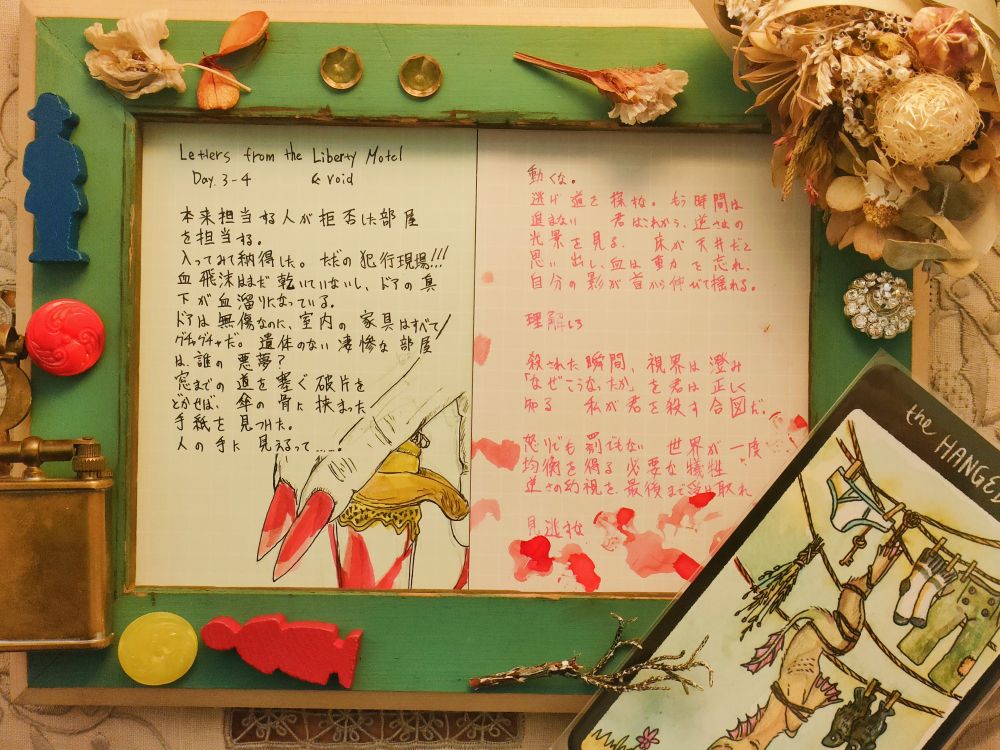 Letters from the Liberty Motel
Day. 3-4 & void
本来担当する人が拒否した部屋
を担当する。
入ってみて納得した。ただの犯行現場!!!
血飛沫はまだ乾いていないし、ドアの真
下が血溜りになっている。
ドアは無傷なのに、室内の家具はすべて
グチャグチャだ。遺体のない凄惨な部屋
は、誰の悪夢?
窓までの道を塞ぐ破片を
どかせば、傘の骨に挟まった
手紙を見つけた。
人の手に見えるって……。
動くな。
逃げ道を探すな。もう時間は
進まない 君はこれから、逆さまの
光景を見る。床が天井だと
思い出し、血は重力を忘れ、
自分の影が首から伸びて揺れる。
理解しろ
殺された瞬間、視界は澄み
「なぜこうなったか」を君は正しく
知る 私が君を殺す合図だ。
怒りでも罰でもない 世界が一度
均衡を得る必要な犠牲
逆さの幻視を最後まで受け取れ
見逃すな
the HANGE